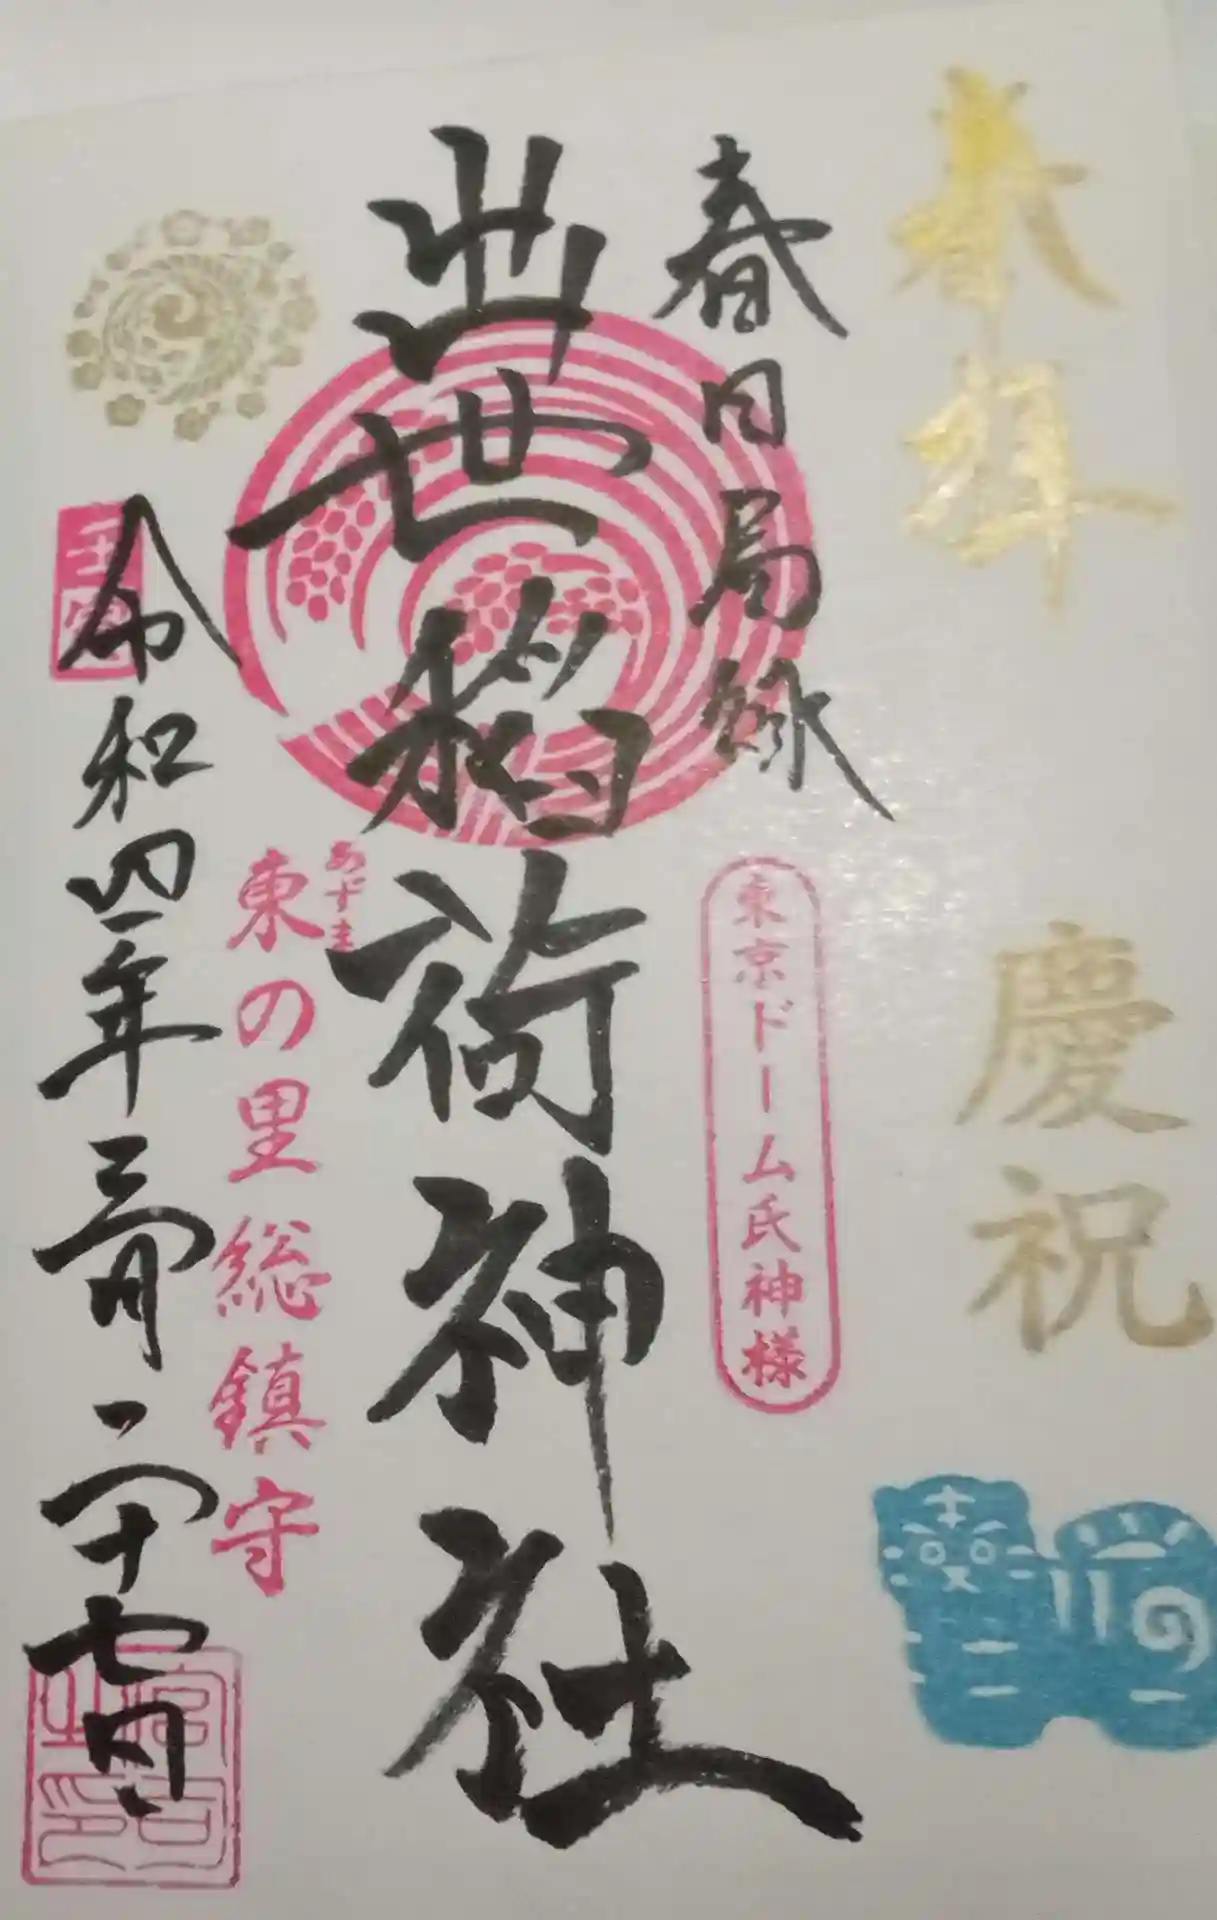 奉拝
慶祝
春日局縁
東京ドーム氏神様
出世稲荷神社
あずま
東の里総鎮守
壬寅
令和四年三月二十七日